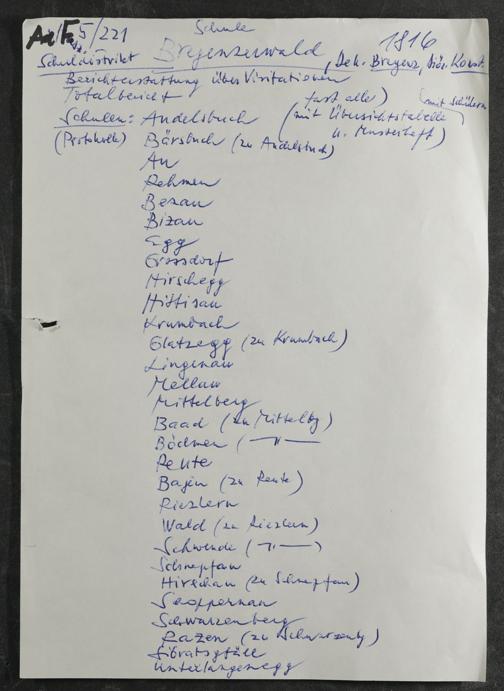 5/221 Schule 1816
Schuldistrikt Bregenzerwald, Dek. Bregenz, Diöz. Konst.
Berichterstattung über Visitationen
Totalbericht fast alle) (mit Schülern
Schulen: Andelsbuch (mit Übersichtstabelle
(Protokolle) Bärsbuch (zu Andelsbuch) u. Musterheft)
Au
Rehmen
Bezau
Bizau
Egg
Grossdorf
Hirschegg
Hittisau
Krumbach
Glatzegg (zu Krumbach)
Lingenau
Mellau
Mittelberg
Baad (zu Mittelbg)
Bödmen (—"—
Reute
Bajen (zu Reute)
Riezlern
Wald (zu Riezlern)
Schwende (—"—)
Schnepfau
Hirschau (zu Schnepfau)
Schoppernau
Schwarzenberg
Razen (zu Schwarzenbg)
Sibratsgfäll
Unterlangenegg